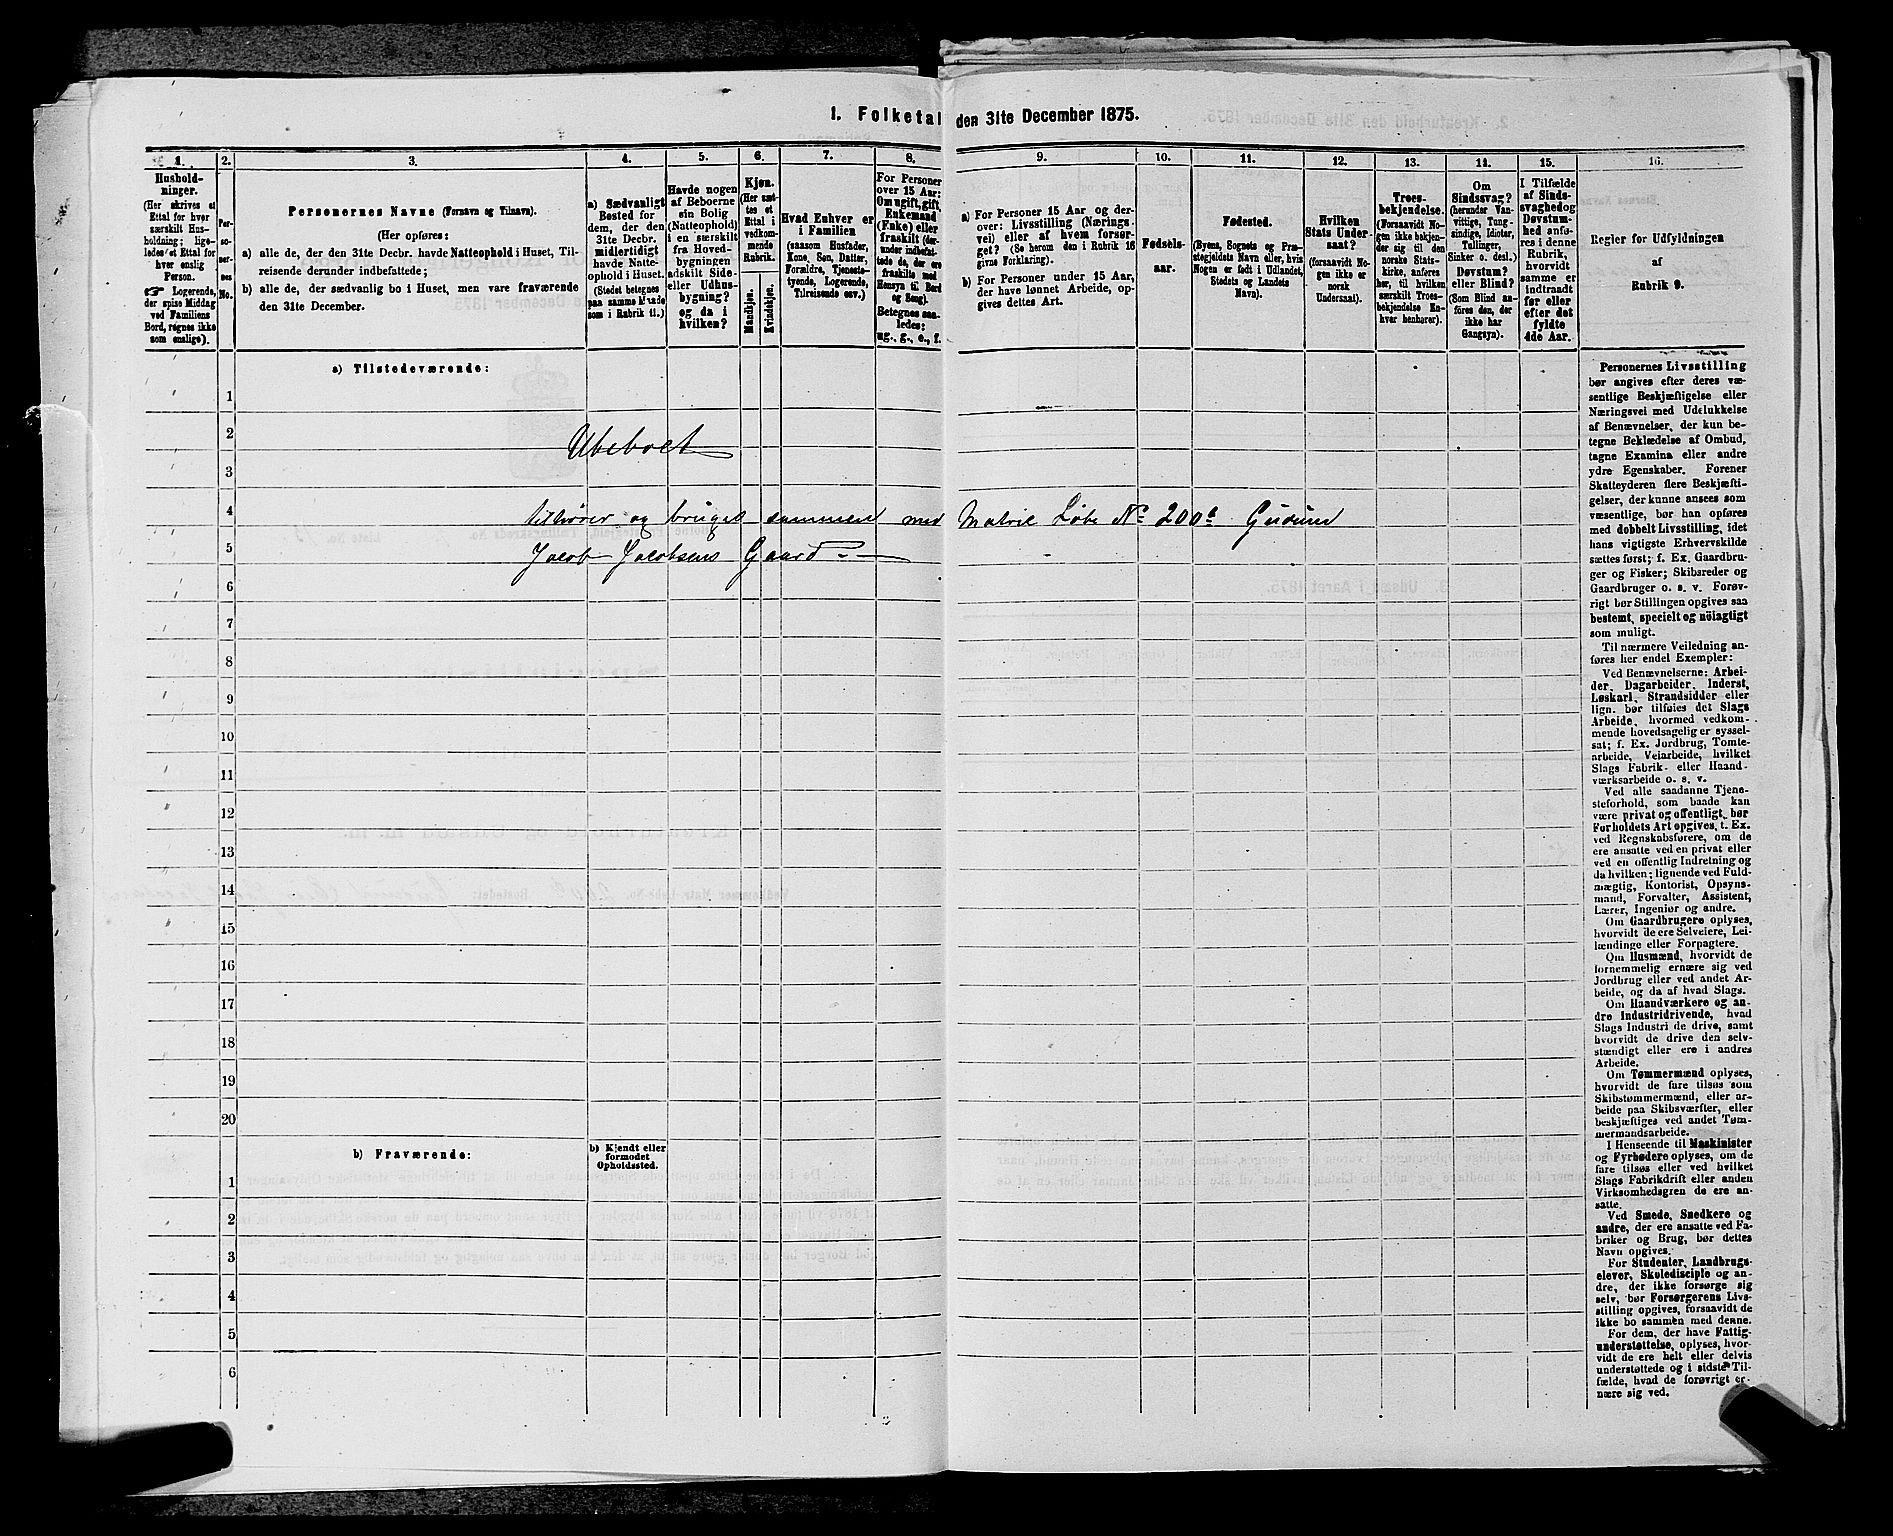 1. Folketal den 31te December 1875.
1.
Hushold-
ninger.
(Her skrives et
Ettal for hver
særskilt Hus-
holdning; lige-
ledes et Ettal for
hver enslig
Person.
Logerende,
der spise Middag
ved Familiens
Bord, regnes ikke
som enslige).
2.
Per-
so-
ner-
nes
No.
3.
Personernes Navne (Fornavn og Tilnavn).
(Her opføres:
a) alle de, der den 31te Decbr. havde Natteophold i Huset, Til-
reisende derunder indbefattede;
b) alle de, der sædvanlig bo i Huset, men vare fraværende
den 31te December.
4.
a) Sædvanligt
Bosted for
dem, der den
31te Decbr.
midlertidigt
havde Natte-
ophold i Huset.
(Stedet betegnes
paa samme Maade
som i Rubrik 11.)
5.
Havde nogen
af Beboerne
sin Bolig
(Natteophold)
i en særskilt
fra Hoved-
bygningen
adskilt Side-
eller Udhus-
bygning?
og da i
hvilken?
6.
Kjøn.
(Her sæt-
tes et
Ettal i
vedkom-
mende
Rubrik.
Mandkjøn.
Kvindekjøn.
7.
Hvad Enhver er
i Familien
(saasom Husfader,
Kone, Søn, Datter,
Forældre, Tjeneste-
tyende, Logerende,
Tilreisende osv.)
8.
For Personer
over 15 Aar:
Om ugift, gift,
Enkemand
(Enke) eller
fraskilt (der-
under indbefat-
tede de, der ere
fraskilte med
Hensyn til Bord
og Seng).
Betegnes saa-
ledes:
ug., g., e., f.
9.
a) For Personer 15 Aar og der-
over: Livsstilling (Nærings-
vei) eller af hvem forsør-
get? (Se herom den i Rubrik 16
givne Forklaring).
b) For Personer under 15 Aar,
der have lønnet Arbeide, op-
gives dettes Art.
10.
Fødsels-
aar.
11.
Fødested.
(Byens, Sognets og Præ-
stegjeldets Navn eller, hvis
Nogen er født i Udlandet,
Stedets og Landets
Navn).
12.
Hvilken
Stats Under-
saat?
(forsaavidt No-
gen ikke er
norsk
Undersaat).
13.
Troes-
bekjendelse.
(Forsaavidt No-
gen ikke bekjen-
der sig til den
norske Stats-
kirke, anføres
her, til hvilken
særskilt Troes-
bekjendelse En-
hver henhører).
14.
Om
Sindssvag?
(herunder Van-
vittige, Tung-
sindige, Idioter,
Tullinger,
Sinker o. desl.)
Døvstum?
eller Blind?
(Som Blind an-
føres den, der
ikke har
Gangsyn).
15.
I Tilfælde
af Sinds-
svaghed og
Døvstum-
hed anfø-
res i denne
Rubrik,
hvorvidt
samme er
indtraadt
før eller
efter det
fyldte
4de Aar.
16.
Regler for Udfyldningen
af
Rubrik 9.
a) Tilstedeværende:
1
2
Ubeboet
3
4
tilhører og bruges sammen med Matric Løbe No 200a Gusum
5
Jacob Jacobsens Gaard
6
7
8
9
10
11
12
13
14
15
16
17
18
19
20
b) Fraværende:
b) Kjendt eller
formodet
Opholdssted.
1
2
3
4
5
6
Personernes Livsstilling
bør angives efter deres væ-
sentlige Beskjæftigelse eller
Næringsvei med Udelukkelse
af Benævnelser, der kun be-
tegne Beklædelse af Ombud,
tagne Examina eller andre
ydre Egenskaber. Forener
Skatteyderen flere Beskjæfti-
gelser, der kunne ansees som
væsentlige, bør han opføres
med dobbelt Livsstilling, idet
hans vigtigste Erhvervskilde
sættes først; f. Ex. Gaardbru-
ger og Fisker; Skibsreder og
Gaardbruger o. s. v. Forøv-
rigt bør Stillingen opgives saa
bestemt, specielt og nöiagtigt
som muligt.
Til nærmere Veiledning an-
føres her endel Exempler:
Ved Benævnelserne: Arbei-
der, Dagarbeider, Inderst,
Løskarl, Strandsidder eller
lign. bør tilføies det Slags
Arbeide, hvormed vedkom-
mende hovedsagelig er syssel-
sat; f. Ex. Jordbrug, Tomte-
arbeide, Veiarbeide, hvilket
Slags Fabrik- eller Haand-
værksarbeide o. s. v.
Ved alle saadanne Tjene-
steforhold, som baade kan
være privat og offentligt, bør
Forholdets Art opgives, t. Ex.
ved Regnskabsførere, om de
ere ansatte ved en privat eller
ved en offentlig Indretning og
da hvilken; lignende ved Fuld-
mægtig, Kontorist, Opsyns-
mand, Forvalter, Assistent,
Lærer, Ingeniør og andre.
Om Gaardbrugere oplyses,
hvorvidt de ere Selveiere, Lei-
lændinge eller Forpagtere.
Om Husmænd, hvorvidt de
fornemmelig ernære sig ved
Jordbrug eller ved andet Ar-
beide, og da af hvad Slags.
Om Haandværkere og an-
dre Industridrivende, hvad
Slags Industri de drive, samt
hvorvidt de drive den selv-
stændigt eller ere i andres
Arbeide.
Om Tømmermænd oplyses,
hvorvidt de fare tilsøs som
Skibstømmermænd, eller ar-
beide paa Skibsværfter, eller
beskjæftiges ved andet Tøm-
mermandsarbeide.
I Henseende til Maskinister
og Fyrbødere oplyses, om de
fare tilsøs eller ved hvilket
Slags Fabrikdrift eller anden
Virksomhedsgren de ere an-
satte.
Ved Smede, Snedkere og
andre, der ere ansatte ved Fa-
briker og Brug, bør dettes
Navn opgives.
For Studenter, Landbrugs-
elever, Skoledisciple og an-
dre, der ikke forsørge sig
selv, bør Forsørgerens Livs-
stilling opgives, forsaavidt de
ikke bo sammen med denne.
For dem, der have Fattig-
understøttelse, oplyses, hvor-
vidt de ere helt eller delvis
understøttede og i sidste Til-
fælde, hvad de forøvrigt er-
nære sig ved.